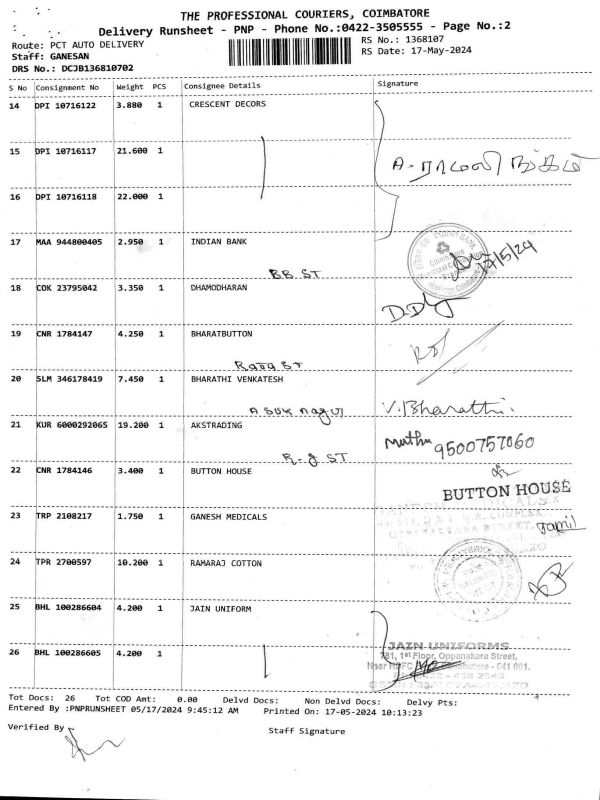 THE PROFESSIONAL COURIERS, COIMBATORE
Delivery Runsheet - PNP - Phone No.:0422-3505555 - Page No.:2
Route: PCT AUTO DELIVERY
RS No.: 1368107
Staff: GANESAN
RS Date: 17-May-2024
DRS No.: DCJB136810702
S No Consignment No Weight PCS Consignee Details Signature
14 DPI 10716122 3.880 1 CRESCENT DECORS
15 DPI 10716117 21.600 1
16 DPI 10716118 22.000 1
17 MAA 944800405 2.950 1 INDIAN BANK
17/5/24
BB ST
18 COK 23795042 3.350 1 DHAMODHARAN
19 CNR 1784147 4.250 1 BHARATBUTTON
20 SLM 346178419 7.450 1 BHARATHI VENKATESH
V.Bharathi.
21 KUR 6000292065 19.200 1 AKSTRADING
Muthu 9500757060
R-J ST
22 CNR 1784146 3.400 1 BUTTON HOUSE
BUTTON HOUSE
23 TRP 2108217 1.750 1 GANESH MEDICALS
Tamil
24 TPR 2700597 10.200 1 RAMARAJ COTTON
25 BHL 100286604 4.200 1 JAIN UNIFORM
JAIN UNIFORMS
781, 1st Floor, Oppanakara Street,
26 BHL 100286605 4.200 1
641 001.
Tot Docs: 26 Tot COD Amt: 0.00 Delvd Docs: Non Delvd Docs: Delvy Pts:
Entered By :PNPRUNSHEET 05/17/2024 9:45:12 AM Printed On: 17-05-2024 10:13:23
Verified By
Staff Signature